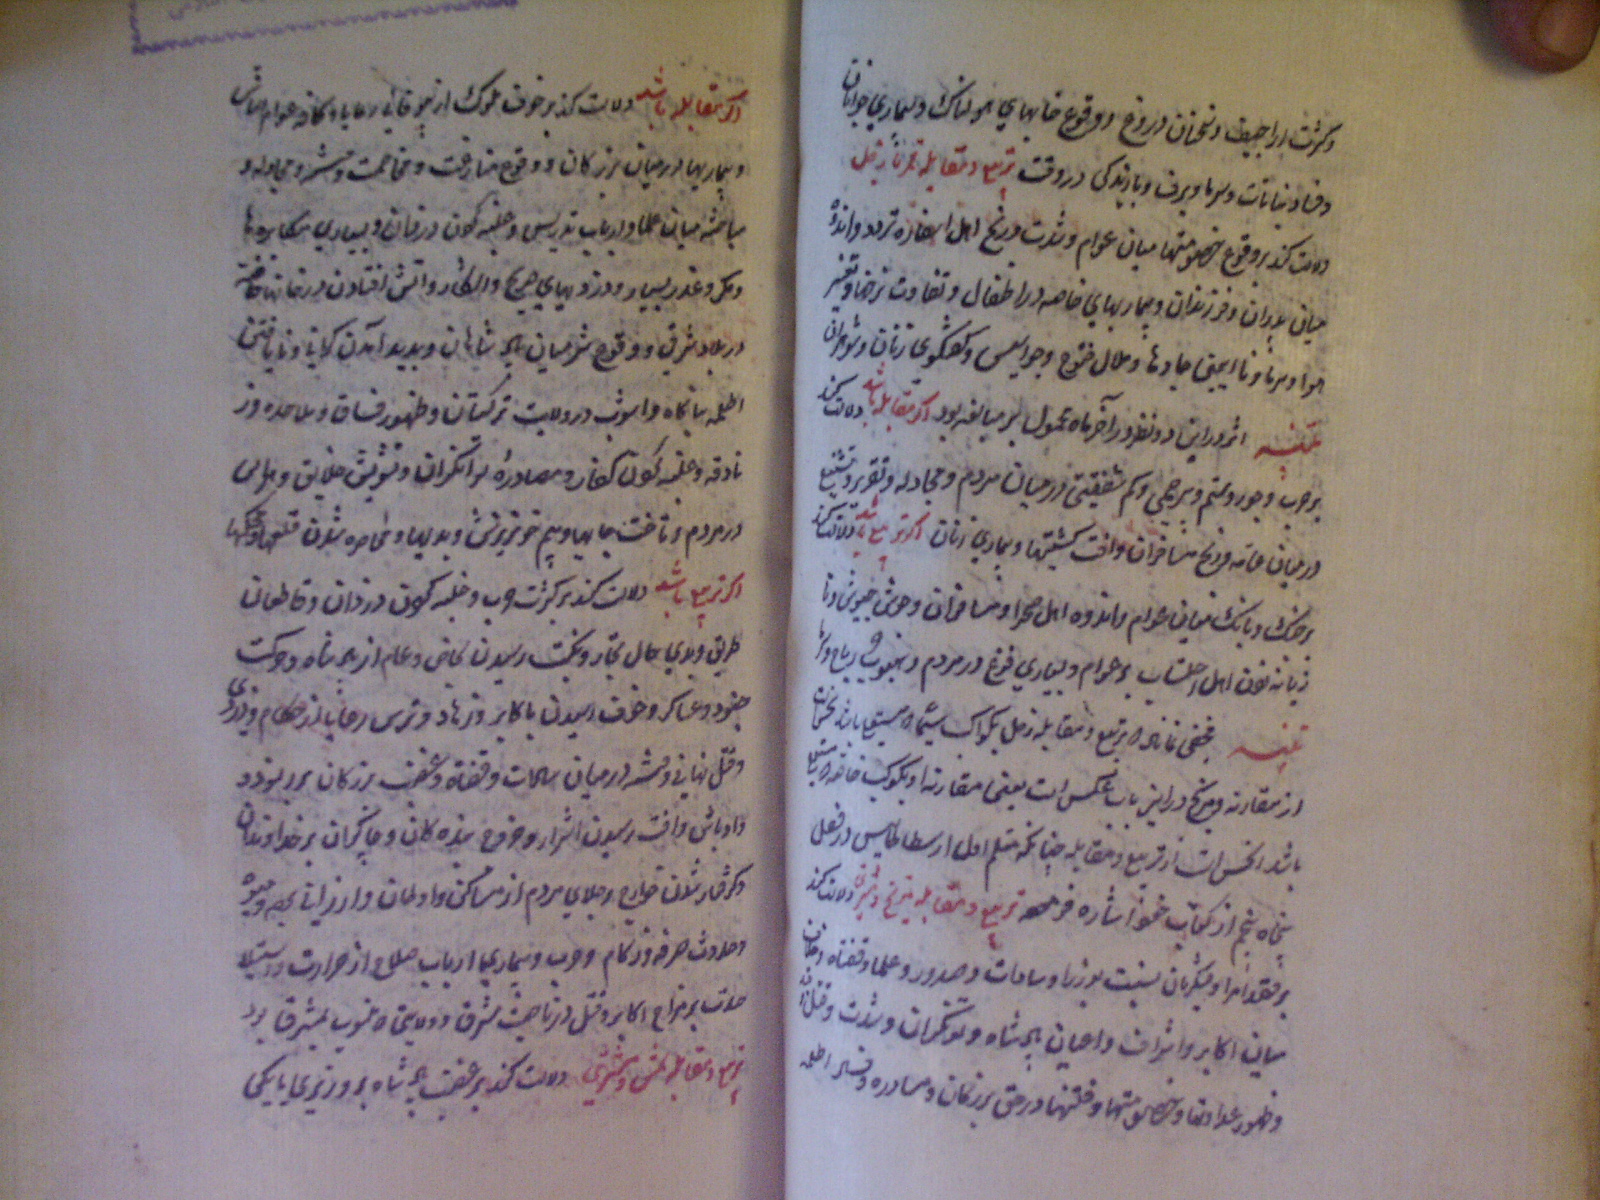 و کثرت اراجیف و سخنان دروغ و وقوع خوابهای هولناک و بیماری جوانان
و فساد نباتات و سرما و برف و بارندگی در وقت تربیع و مقابله قمر با زحل
دلالت کند بر وقوع خصومتها میان عوام و شدت و رنج اهل اسفار و تردد و اندوه
میان پدران و فرزندان و بیماریهای خاصه در اطفال و تفاوت نرخها و تغیر
هوا و سرما و ناایمنی جادها و ملال و جواسیس و گفتگوی زنان و شوهران
تنبیه اثر در این دو نظر در آخر ماه معمول بر مبالغه بود اگر مقابله باشد دلالت کند
بر حرب و جور و ستم و بیرحمی و کم شفقتی در میان مردم و مجادله و تشنیع
در میان عامه و رنج مسافران و آفت کشتیها و بیماری زنان اگر تربیع باشد دلالت کند
بر جنگ و بانگ میان عوام و اندوه اهل صحرا و مسافران و جیوش و تا
زیانه زدن اهل احتساب بر عوام و بسیاری فزع در مردم و هبوب ریاح
تنبیه مخفی نماند که تربیع و مقابله زحل بکواکب
از مقارنه و مریخ در این باب بعکس است یعنی مقارنه او بکوکب
باشد انحس است از تربیع و مقابله چنانکه معلم اول ارسطاطالیس در فصل
پنجاه پنجم از کتاب اشاره فرموده تربیع و مقابله مریخ و مشتری دلالت کند
بر قصد امرا و لشکریان بنسبت بوزرا و سادات و صدور و علما و قضاة
میان اکابر و اشراف و اعیان پادشاه و توانگران و شدت و قتل
و ظهور عداوتها و خصومتها و فتنها در حق بزرگان و مصادره
اگر مقابله باشد دلالت کند بر خوف ملوک از رعایا و کافه عوام
و بیماریها در میان بزرگان و وقوع منازعت و مخاصمت و مجادله و
مباحثه میان علما و ارباب تدریس و غلبه کردن دزدان و بسیاری مکابرها
و مکر و غدر بسیار و دزدیهای صریح و آشکار و آتش افتادن در خانها خاصه
در بلاد شرقی و وقوع شر میان پادشاهان و پدید آمدن گرانی و نایافتن
اطعمه بیگاه و آشوب در ولایت ترکستان و ظهور فساق و ملاحده و ز
نادقه و غلبه کردن کفار و مصادره توانگران و تشویش خلایق و هراس
در مردم و تاخت جایها و بیم خونریزش و بدیها و محاصره شدن قلعها
اگر تربیع باشد دلالت کند بر کثرت حرب و غلبه کردن دزدان و قاطعان
طریق و بدی حال تجار و نکبت رسیدن بخاص و عام از پادشاه و حرکت
جنود و عساکر و خوف رسیدن باکابر و زهاد و ترس رعایا از حکام و دزدی
و قتل نهانی و فتنه در میان سادات و قضاة و ضعف بزرگان
و اوباش و آفت رسیدن اشرار و خروج بنده کان و چاکران بر خداوندان
و گرفتار شدن خوارج و جلای مردم از مساکن و اوطان و ارزانی
و حدوث سرفه و زکام و حرب و بیماری ارباب صلاح از حرارت و استیلا
حدت بر مزاج اکابر و قتل در ناحیت مشرق و ولایتی که منسوب بمشرق بود
تربیع و مقابله شمس و مشتری دلالت کند بر غضب پادشاه بر وزیری یا یکی